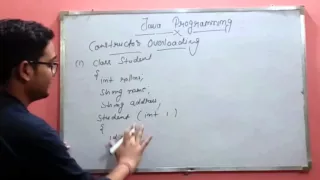 Java Programming
Constructor Overloading
(1) Class Student
{
int rollno,
String name,
String address,
Student (int i)
{